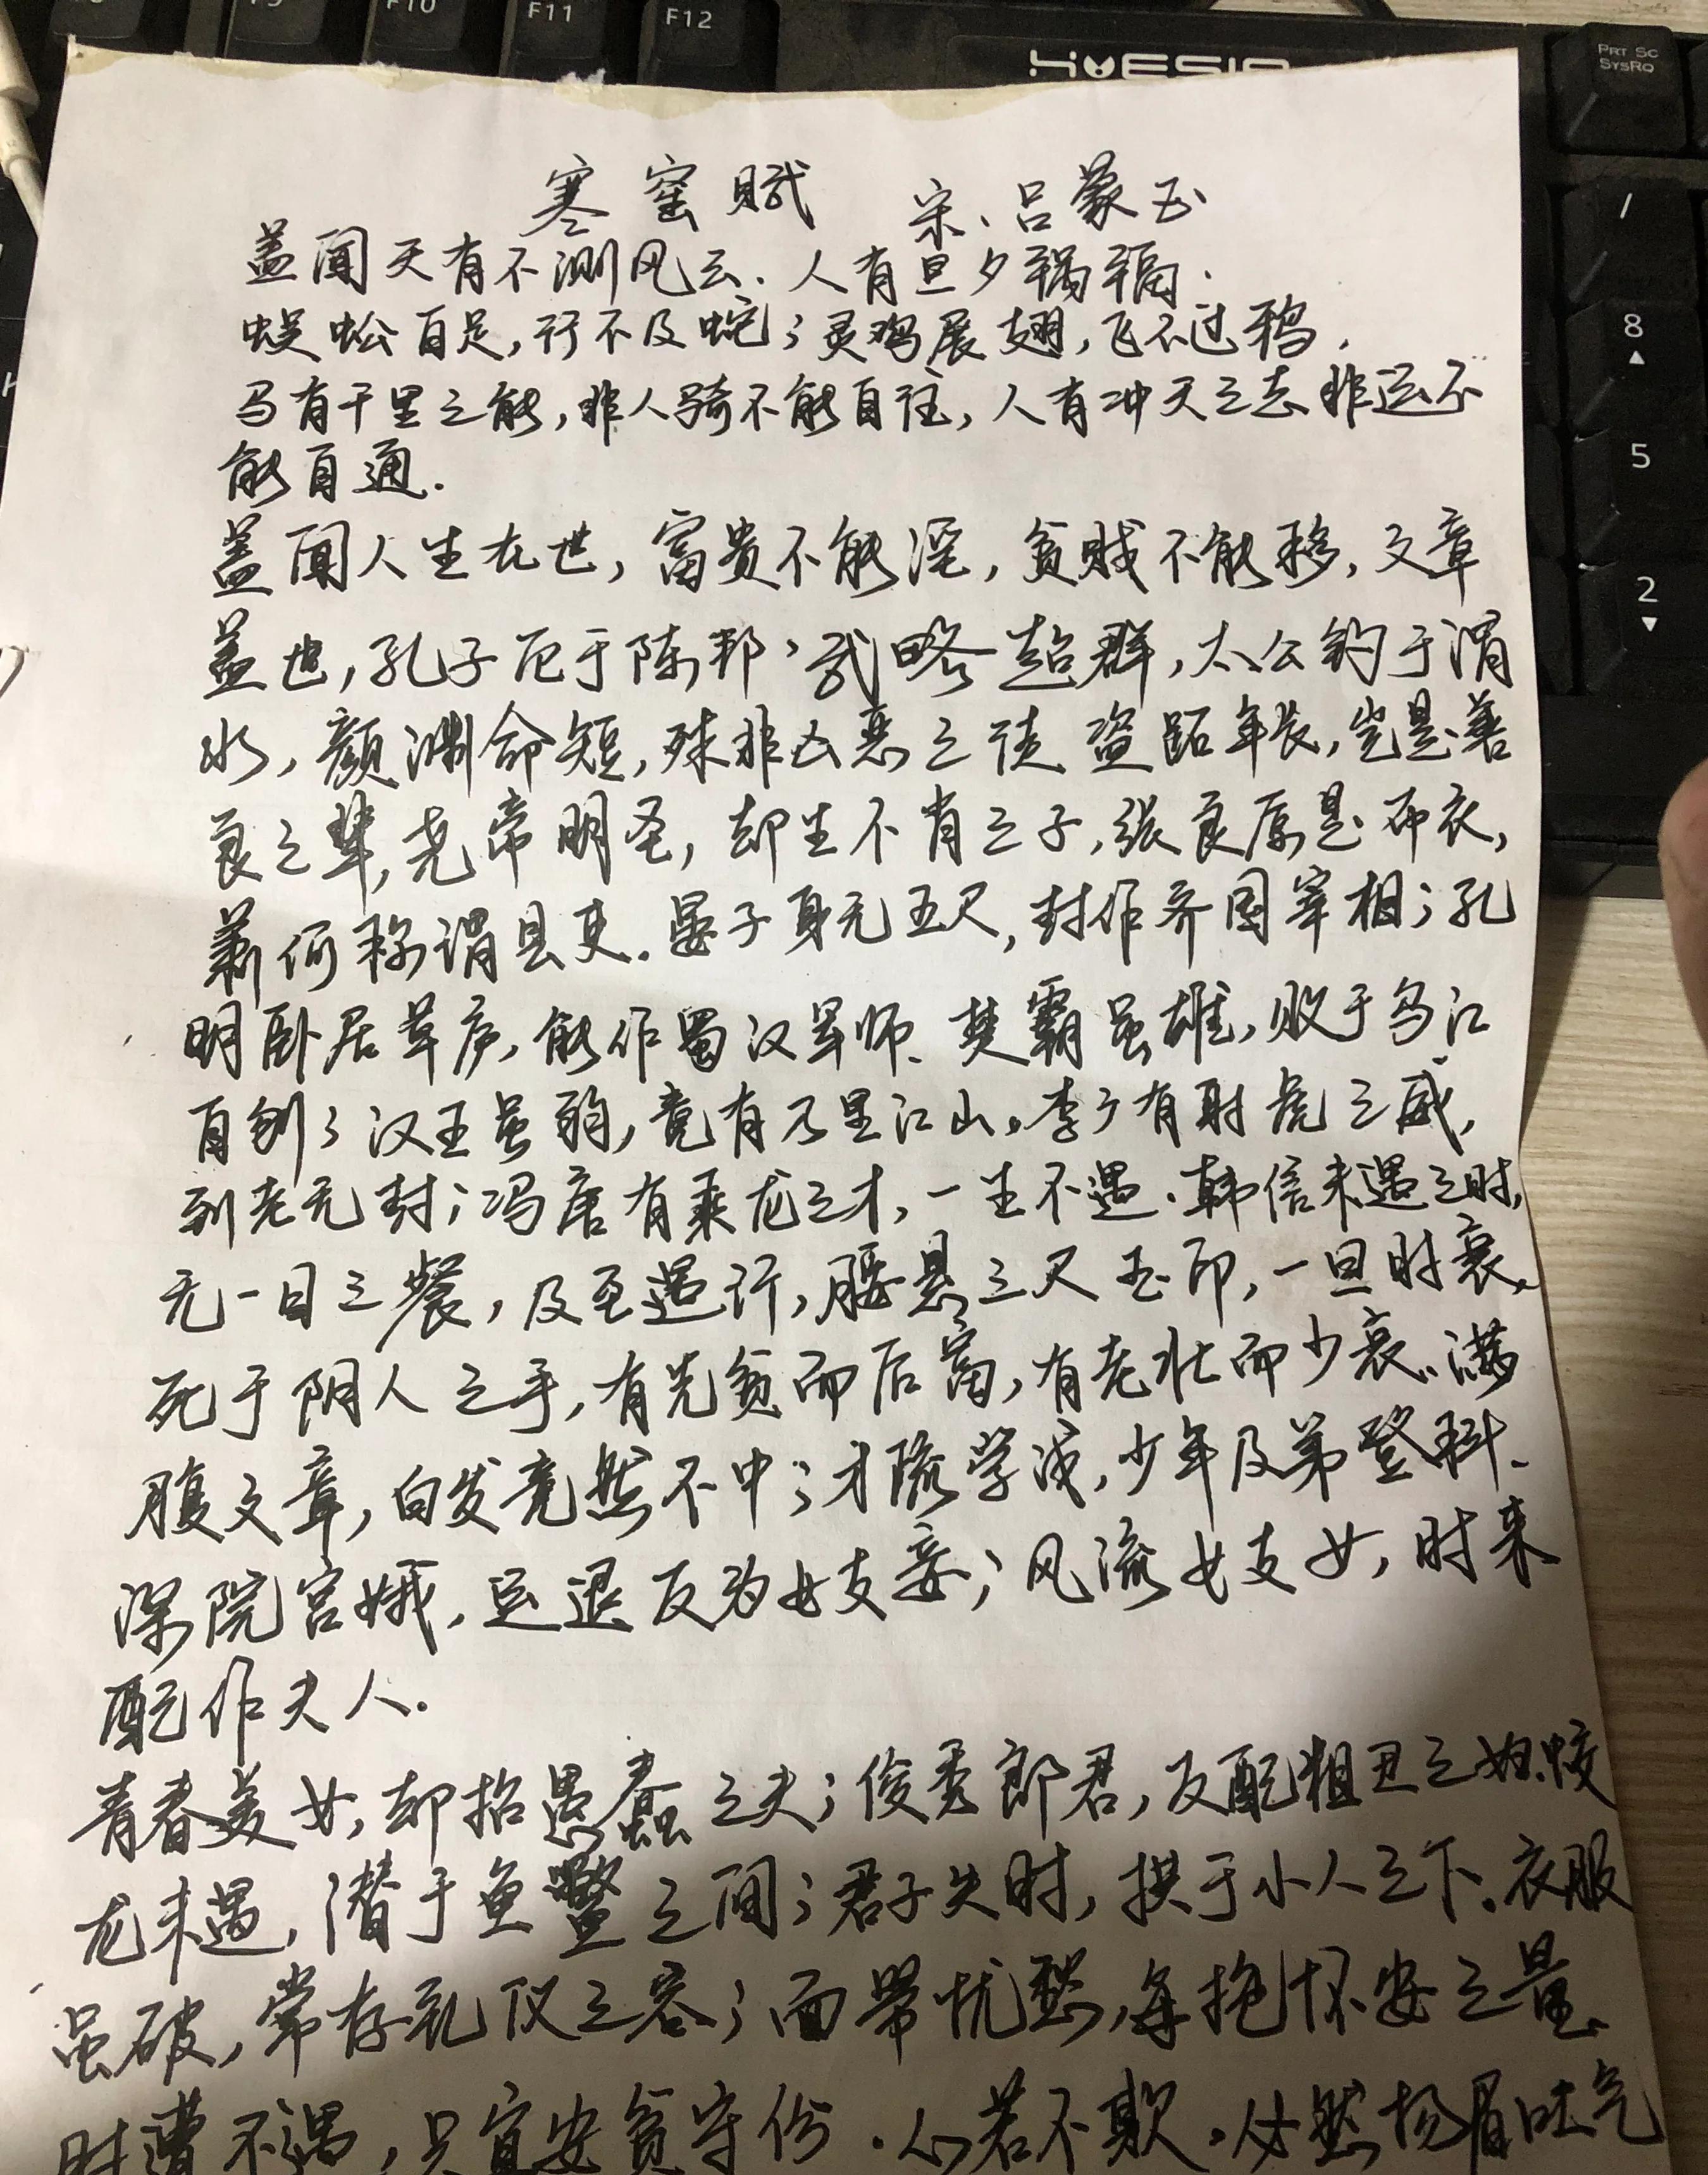 F10
F11
F12
PRT SC
SYSRQ
/
8
5
2
寒窑赋 宋、吕蒙正
盖闻天有不测风云.人有旦夕祸福.
蜈蚣百足,行不及蛇;灵鸡展翅,飞不过鸦.
马有千里之能,非人骑不能自往,人有冲天之志非运不
能自通.
盖闻人生在世,富贵不能淫,贫贱不能移,文章
盖世,孔子厄于陈邦,武略超群,太公钓于渭
水,颜渊命短,殊非凶恶之徒 盗跖年长,岂是善
良之辈,尧帝明圣,却生不肖之子,张良原是布衣,
萧何称谓县吏.晏子身无五尺,封作齐国宰相;孔
明卧居草庐,能作蜀汉军师、楚霸虽雄,败于乌江
自刎;汉王虽弱,竟有万里江山。李广有射虎之威,
到老无封;冯唐有乘龙之才,一生不遇.韩信未遇之时,
无一日三餐,及至遇行,腰悬三尺玉印,一旦时衰,
死于阴人之手,有先贫而后富,有老壮而少衰、满
腹文章,白发竟然不中;才疏学浅,少年及第登科、
深院宫娥,运退反为妓妾;风流妓女,时来
配作夫人.
青春美女,却招愚蠢之夫;俊秀郎君,反配粗丑之妇.蛟
龙未遇,潜于鱼鳖之间;君子失时,拱于小人之下。衣服
虽破,常存礼仪之容;面带忧愁,每抱怀安之量、
时遭不遇,只宜安贫守份.心若不欺.必然扬眉吐气